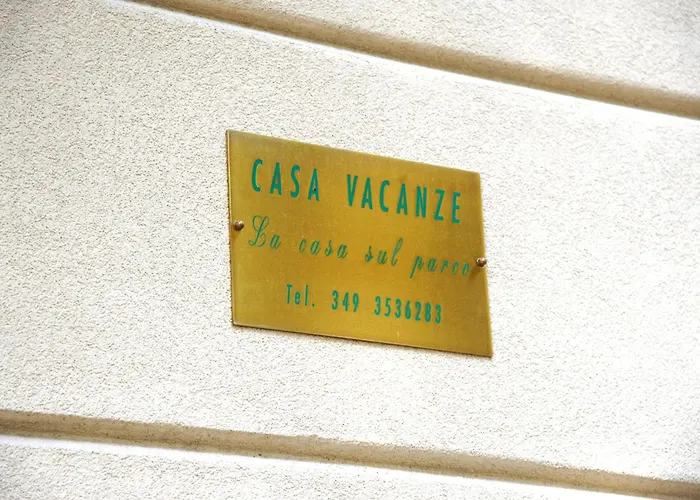 CASA VACANZE
La casa sul parco
Tel. 349 3536283